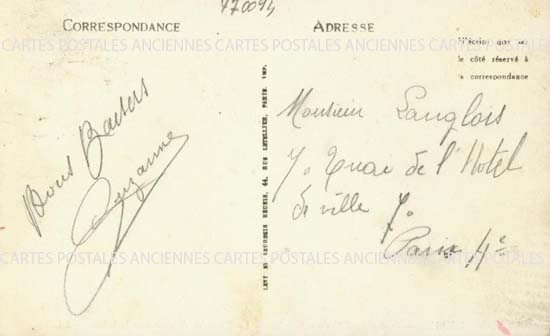 470094
CORRESPONDANCE
ADRESSE
N'écrire que sur
le côté réservé à
la correspondance
CARTES POSTALES ANCIENNES CARTES POSTALES ANCIENNES CARTES POSTALES ANCIENNES
Bons Baisers
Suzanne
LEVY ET NEURDEIN RÉUNIS, 44, RUE LETELLIER, PARIS. IMP.
Monsieur Langlois
70 Quai de l'Hotel
de ville 70
Paris 4e
CARTES POSTALES ANCIENNES CARTES POSTALES ANCIENNES CARTES POSTALES ANCIENNES